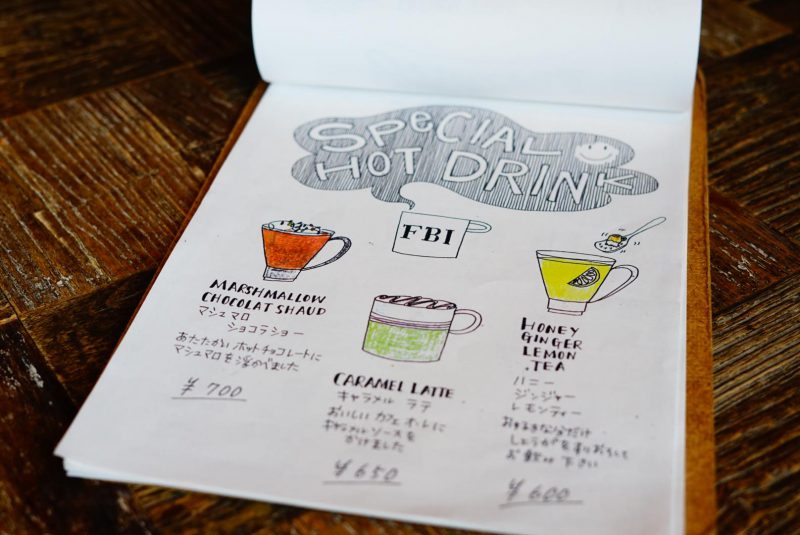 SPECIAL
HOT DRINK
FBI
MARSHMALLOW
CHOCOLAT SHAUD
マシュマロ
ショコラショー
あたたかいホットチョコレートに
マシュマロを浮かべました
¥700
CARAMEL LATTE
キャラメル ラテ
おいしいカフェオレに
キャラメルソースを
かけました
¥650
HONEY
GINGER
LEMON
.TEA
ハニー
ジンジャー
レモンティー
お好きな分だけ
しょうがをすりおろして
お飲み下さい
¥600